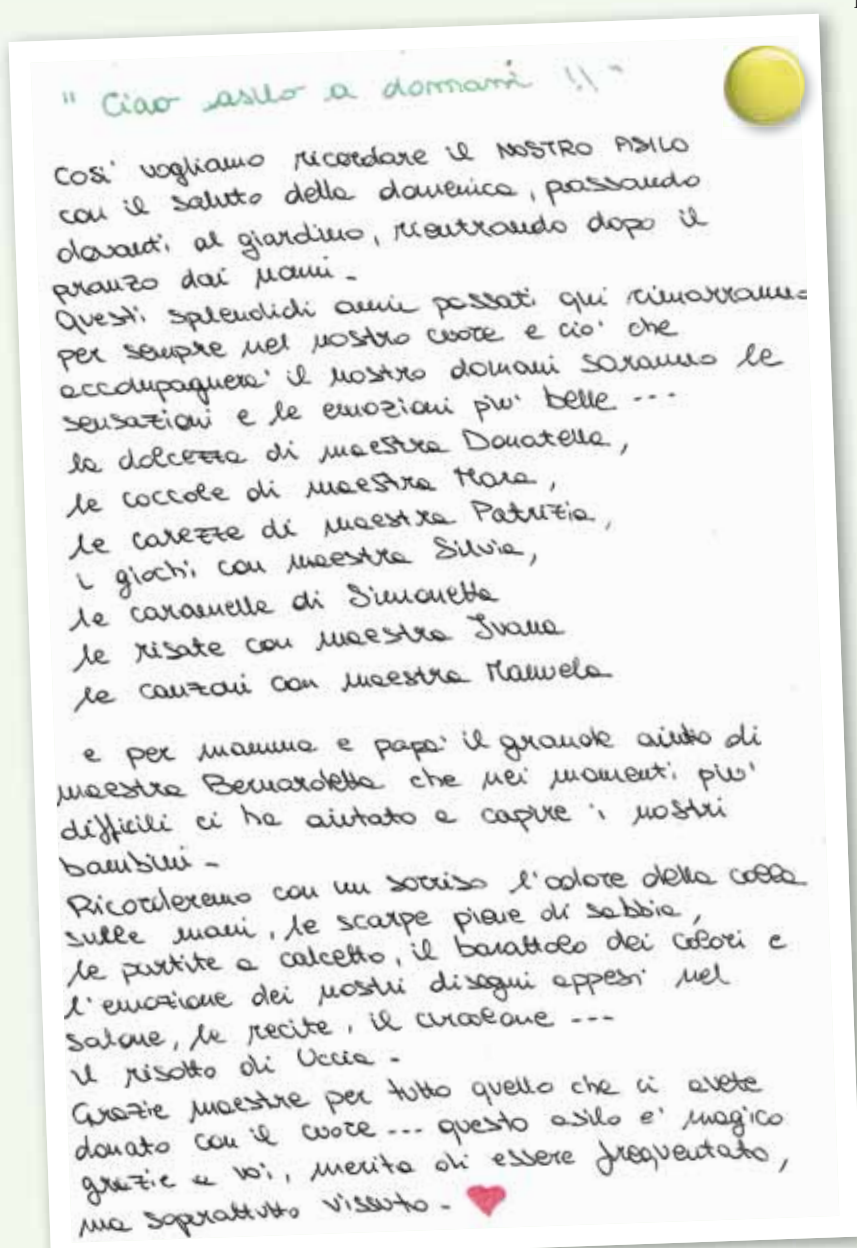 " Ciao asilo a domani !! "
Cosi' vogliamo ricordare il NOSTRO ASILO
con il saluto della domenica, passando
davanti al giardino, rientrando dopo il
pranzo dai nonni -
Questi splendidi anni passati qui rimarranno
per sempre nel nostro cuore e cio' che
accompagnera' il nostro domani saranno le
sensazioni e le emozioni piu' belle ---
la dolcezza di maestra Donatella,
le coccole di maestra Mara,
le carezze di maestra Patrizia,
i giochi con maestra Silvia,
le caramelle di Simonetta
le risate con maestra Ivana
le canzoni con maestra Manuela
e per mamma e papa' il grande aiuto di
maestra Bernardetta che nei momenti piu'
difficili ci ha aiutato a capire i nostri
bambini -
Ricorderemo con un sorriso l'odore della colla
sulle mani, le scarpe piene di sabbia,
le partite a calcetto, il barattolo dei colori e
l'emozione dei nostri disegni appesi nel
salone, le recite, il circolone ---
il risotto di Uccia -
Grazie maestre per tutto quello che ci avete
donato con il cuore --- questo asilo e' magico
grazie a voi, merita di essere frequentato,
ma soprattutto vissuto -